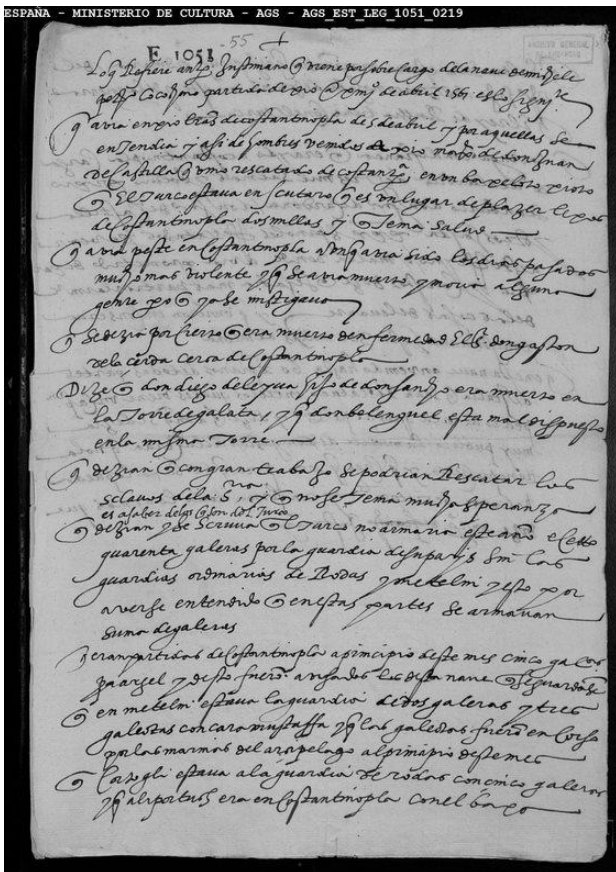 ESPAÑA - MINISTERIO DE CULTURA - AGS - AGS_EST_LEG_1051_0219
E 1051 55
Lo q Refiere Justiniano q viene por sobre cargo de la nave
partida de xio a de abril 1561 es lo sigui.te
q avia en xio tras de costantinopla de 5 de abril y por aquellas se
entendia y asi de hombres venidos a xio de don Juan
de Castilla q vino rescatado de costan.pla en un baxel
q El Turco estava en scutaro q es un lugar de plazer lexos
de Costantinopla dos millas y q Tenia salud
q avia peste en Costantinopla avnq avia sido los dias pasados
mucho mas violente y q se avia muerto y moria alguna
gente po q ya se mitigava
q se dezia por cierto q era muerto de enfermedad El S. don gaston
dela cerda cerca de Costantinopla
Dize q don diego de leyva hijo de don sancho era muerto en
la Torre de galata, y q don belenguel esta mal dispuesto
en la misma Torre.
q dezian q con gran trabajo se podrian Rescatar los
sclavos de la S.ria, y q no se Tenia mucha speranza
es a saber delos q son del Turco
q dezian y se scrivia q el Turco no armaria este año eccetto
quarenta galeras por la guardia de su pays sin las
guardias ordinarias de Rodas y metelin y esto por
averse entendido q en estas partes se armavan
suma de galeras
q eran partidas de Costantinopla a principio deste mes cinco
pa argel y desto fuero. avisados los desta nave q se guardase
q en metelin estava la guardia de dos galeras y tres
galeotas con cara mustaffa y q las galeotas fuero. en corso
por las marinas del arcipelago al principio deste mes
q estava a la guardia de rodas con cinco galeras
y q era en Costantinopla con el baxa